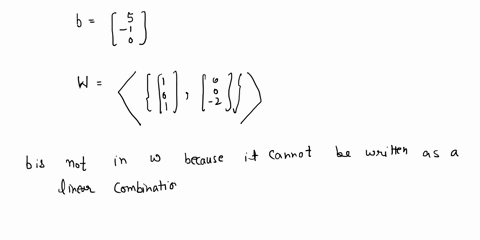 b = [5 -1 0]
W = ⟨ { [1 0 1] , [6 0 -2] } ⟩
b is not in W because it cannot be written as a
linear Combinatio